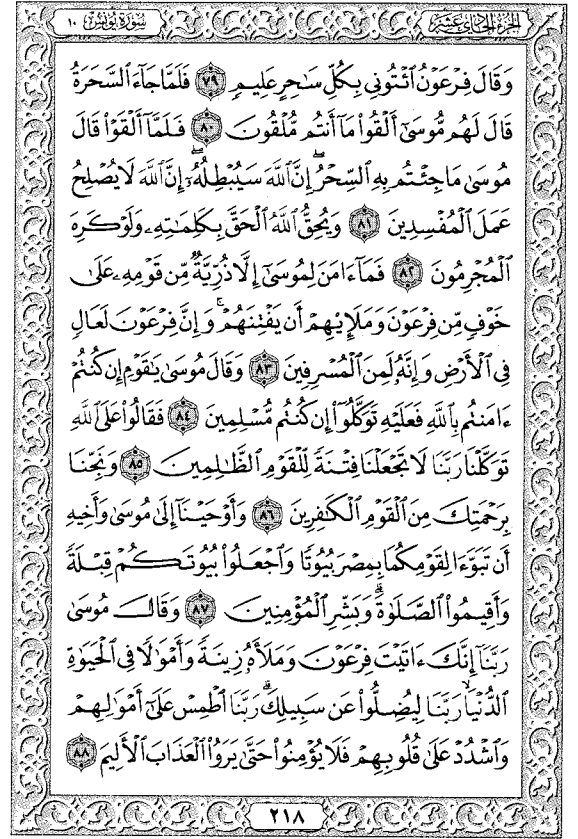 الجزء الحادي عشر
سورة يونس ١٠
وَقَالَ فِرْعَوْنُ ٱئْتُونِى بِكُلِّ سَٰحِرٍ عَلِيمٍ ٧٩ فَلَمَّا جَآءَ ٱلسَّحَرَةُ
قَالَ لَهُم مُّوسَىٰٓ أَلْقُوا۟ مَآ أَنتُم مُّلْقُونَ ٨٠ فَلَمَّآ أَلْقَوْا۟ قَالَ
مُوسَىٰ مَا جِئْتُم بِهِ ٱلسِّحْرُ ۖ إِنَّ ٱللَّهَ سَيُبْطِلُهُۥٓ ۖ إِنَّ ٱللَّهَ لَا يُصْلِحُ
عَمَلَ ٱلْمُفْسِدِينَ ٨١ وَيُحِقُّ ٱللَّهُ ٱلْحَقَّ بِكَلِمَٰتِهِۦ وَلَوْ كَرِهَ
ٱلْمُجْرِمُونَ ٨٢ فَمَآ ءَامَنَ لِمُوسَىٰٓ إِلَّا ذُرِّيَّةٌ مِّن قَوْمِهِۦ عَلَىٰ
خَوْفٍ مِّن فِرْعَوْنَ وَمَلَإِي۟هِمْ أَن يَفْتِنَهُمْ ۚ وَإِنَّ فِرْعَوْنَ لَعَالٍ
فِى ٱلْأَرْضِ وَإِنَّهُۥ لَمِنَ ٱلْمُسْرِفِينَ ٨٣ وَقَالَ مُوسَىٰ يَٰقَوْمِ إِن كُنتُمْ
ءَامَنتُم بِٱللَّهِ فَعَلَيْهِ تَوَكَّلُوٓا۟ إِن كُنتُم مُّسْلِمِينَ ٨٤ فَقَالُوا۟ عَلَى ٱللَّهِ
تَوَكَّلْنَا رَبَّنَا لَا تَجْعَلْنَا فِتْنَةً لِّلْقَوْمِ ٱلظَّٰلِمِينَ ٨٥ وَنَجِّنَا
بِرَحْمَتِكَ مِنَ ٱلْقَوْمِ ٱلْكَٰفِرِينَ ٨٦ وَأَوْحَيْنَآ إِلَىٰ مُوسَىٰ وَأَخِيهِ
أَن تَبَوَّءَا لِقَوْمِكُمَا بِمِصْرَ بُيُوتًا وَٱجْعَلُوا۟ بُيُوتَكُمْ قِبْلَةً
وَأَقِيمُوا۟ ٱلصَّلَوٰةَ ۗ وَبَشِّرِ ٱلْمُؤْمِنِينَ ٨٧ وَقَالَ مُوسَىٰ
رَبَّنَآ إِنَّكَ ءَاتَيْتَ فِرْعَوْنَ وَمَلَأَهُۥ زِينَةً وَأَمْوَٰلًا فِى ٱلْحَيَوٰةِ
ٱلدُّنْيَا ۙ رَبَّنَا لِيُضِلُّوا۟ عَن سَبِيلِكَ ۖ رَبَّنَا ٱطْمِسْ عَلَىٰٓ أَمْوَٰلِهِمْ
وَٱشْدُدْ عَلَىٰ قُلُوبِهِمْ فَلَا يُؤْمِنُوا۟ حَتَّىٰ يَرَوُا۟ ٱلْعَذَابَ ٱلْأَلِيمَ ٨٨
٢١٨